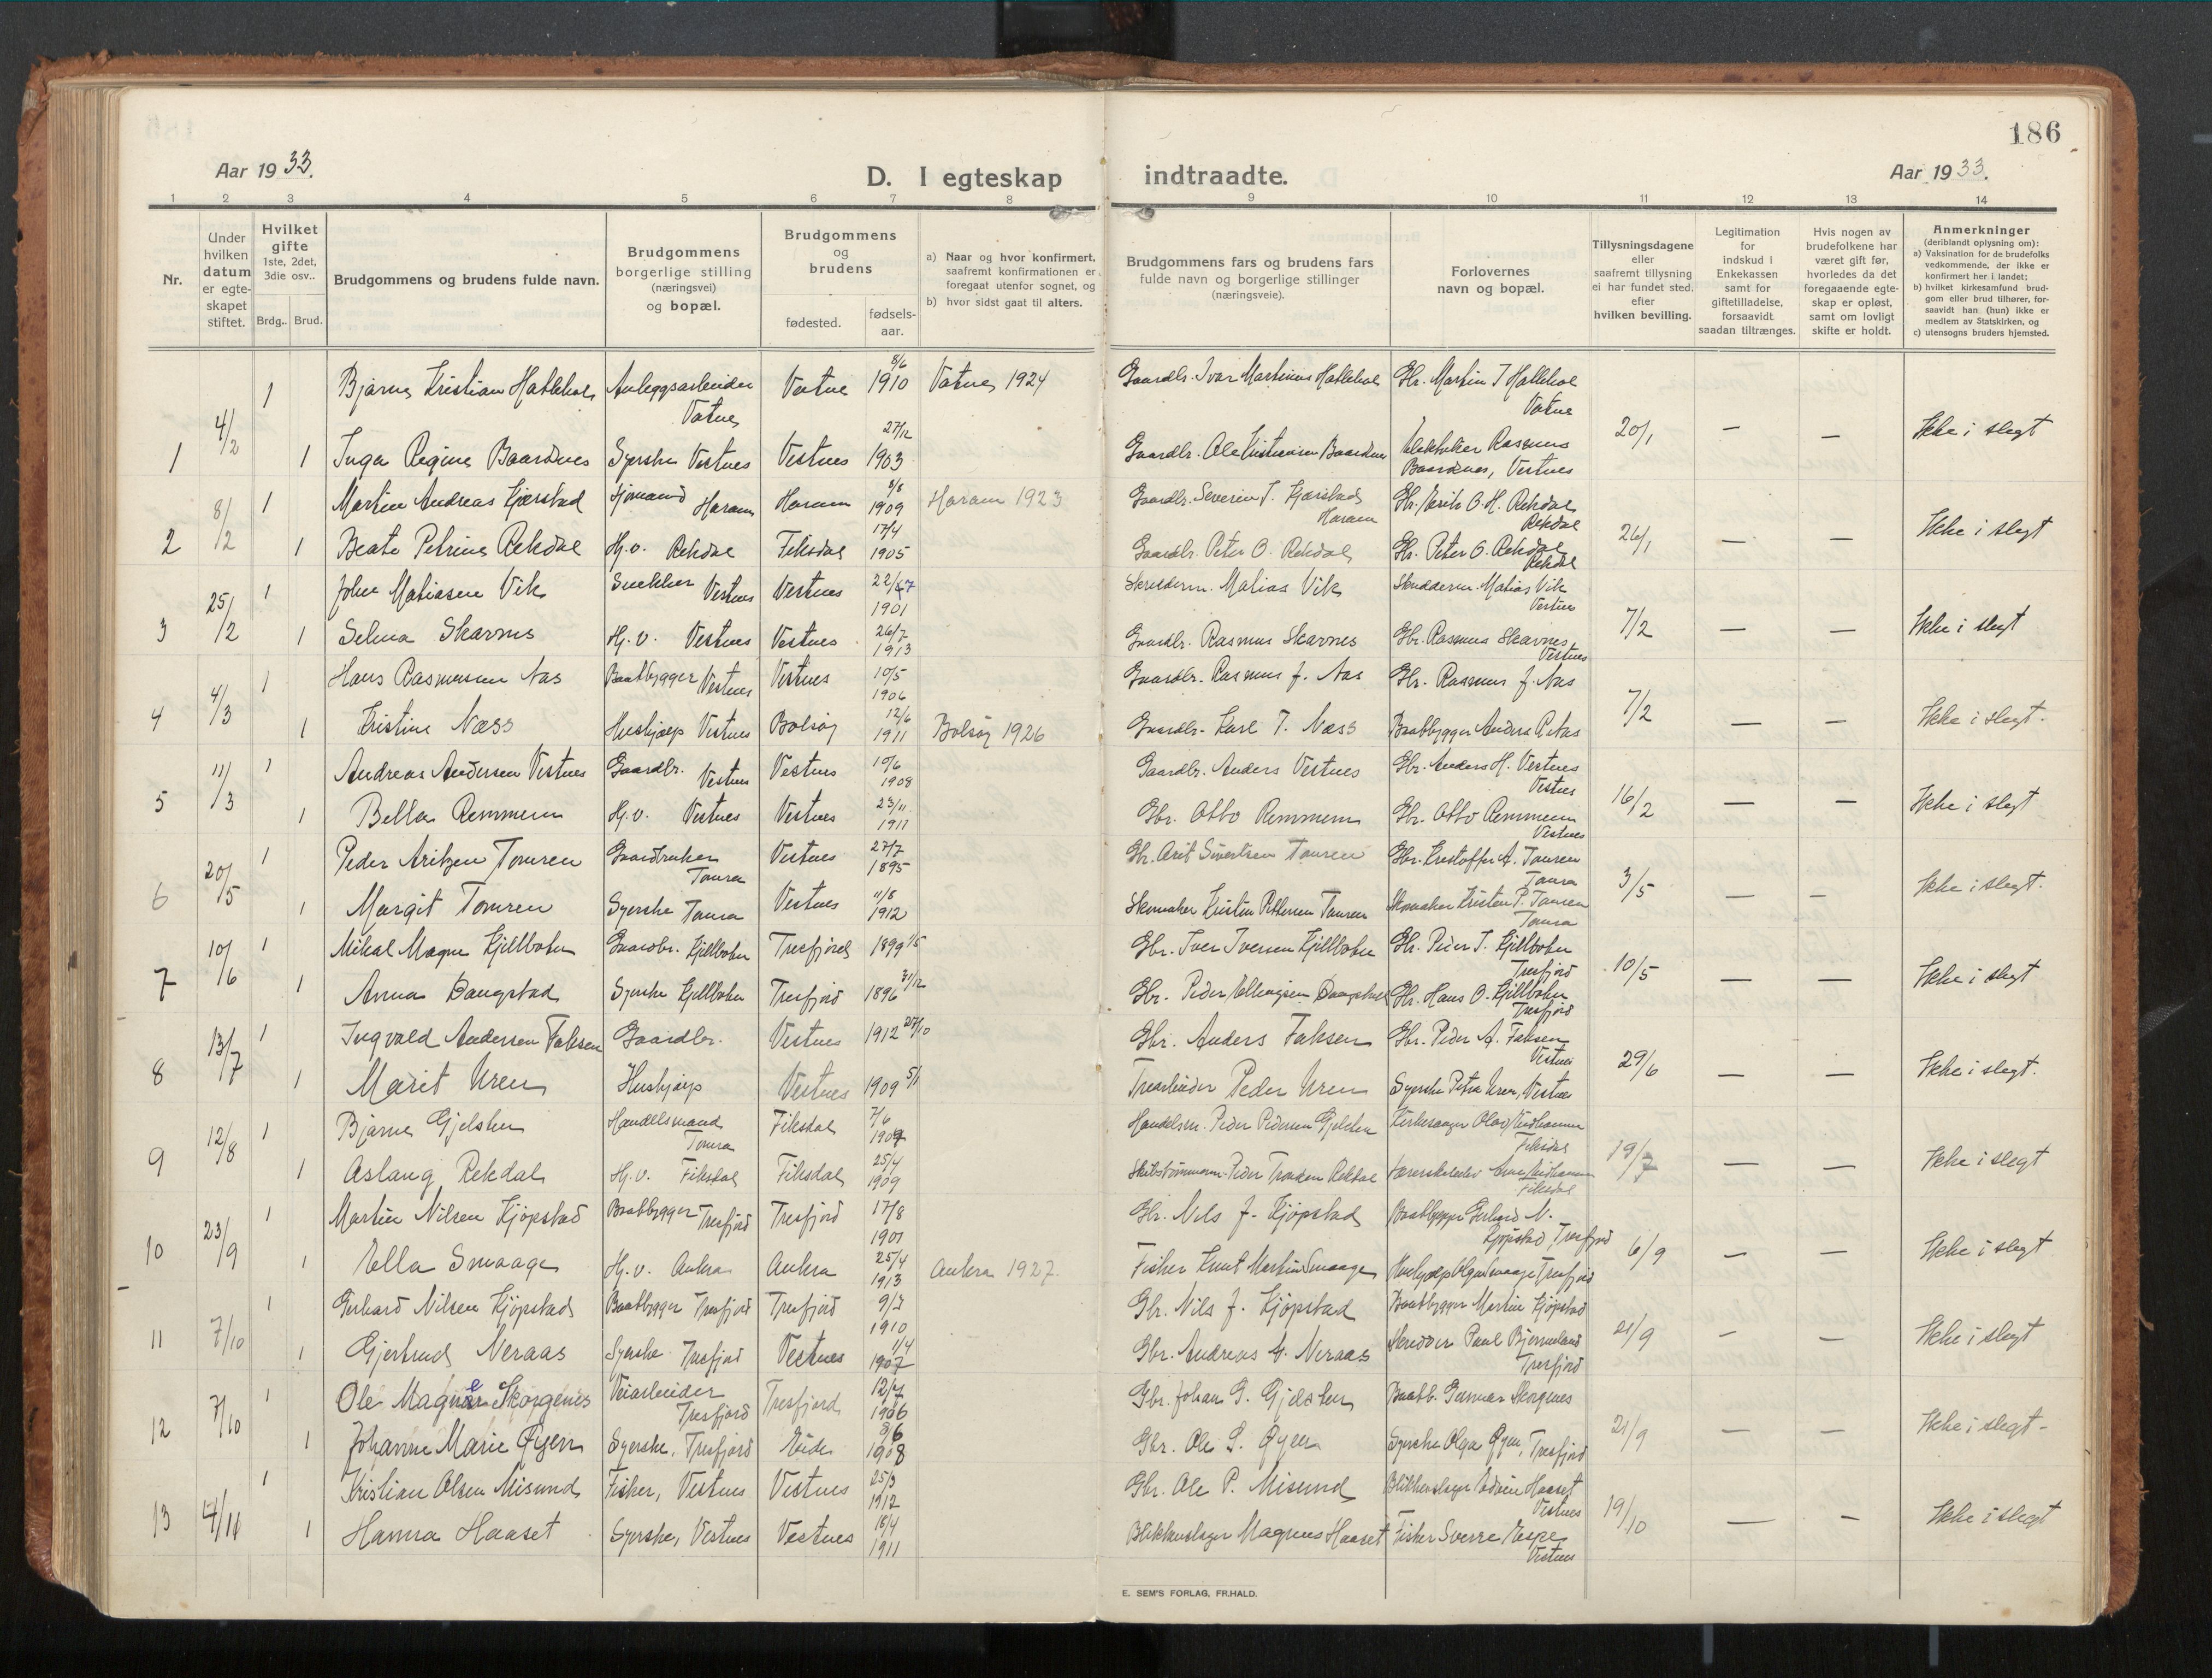 186
Aar 1933.
D. I egteskap indtraadte.
Aar 1933.
1 2 3 4 5 6 7 8 9 10 11 12 13 14
Nr.
Under hvilken datum er egte-skapet stiftet.
Hvilket gifte 1ste, 2det, 3die osv..
Brdg.. Brud.
Brudgommens og brudens fulde navn.
Brudgommens borgerlige stilling (næringsvei) og bopæl.
Brudgommens og brudens
fødested.
fødsels-aar.
a) Naar og hvor konfirmert, saafremt konfirmationen er foregaat utenfor sognet, og
b) hvor sidst gaat til alters.
Brudgommens fars og brudens fars fulde navn og borgerlige stillinger (næringsveie).
Forlovernes navn og bopæl.
Tillysningsdagene eller saafremt tillysning ei har fundet sted. efter hvilken bevilling.
Legitimation for indskud i Enkekassen samt for giftetilladelse, forsaavidt saadan tiltrænges.
Hvis nogen av brudefolkene har været gift før, hvorledes da det foregaaende egte-skap er opløst, samt om lovligt skifte er holdt.
Anmerkninger (deriblandt oplysning om):
a) Vaksination for de brudefolks vedkommende, der ikke er konfirmert her i landet;
b) hvilket kirkesamfund brud-gom eller brud tilhører, for-saavidt han (hun) ikke er medlem av Statskirken, og
c) utensogns bruders hjemsted.
1 Bjarne Kristian Hatlehol Anleggsarbeider Vatne Vatne 8/6 1910 Vatne 1924 Gaardbr. Ivar Martinus Hatlehol Gbr. Martin I Hatlehol Vatne
1 4/2 1 Inga Regine Baardnes Syerske Vestnes Vestnes 27/12 1903 Gaardbr. Ole Kristiansen Baardnes Rasmus Baardnes, Vestnes 20/1 — — Ikke i slegt
1 Martin Andreas Kjærstad Sjømand Haram Haram 8/8 1909 Haram 1923 Gaardbr. Severin J. Kjærstad Haram Gbr. O. H. Rekdal Rekdal
2 8/2 1 Beate Petrine Rekdal Hj.v. Rekdal Fiksdal 17/4 1905 Gaardbr. Peter O. Rekdal Gbr. Peter O. Rekdal Rekdal 26/1 — — Ikke i slegt
1 John Matiasen Vik Snekker Vestnes Vestnes 22/7 1901 Skrædderm. Matias Vik Skrædderm. Matias Vik Vestnes
3 25/2 1 Selma Skarnes Hj.v. Vestnes Vestnes 26/7 1913 Gaardbr. Rasmus Skarnes Gbr. Rasmus Skarnes, Vestnes 7/2 — — Ikke i slegt
1 Hans Rasmussen Aas Baatbygger Vestnes Vestnes 10/5 1906 Gaardbr. Rasmus J. Aas Gbr. Rasmus J. Aas
4 4/3 1 Kristine Næss Hushjælp Vestnes Bolsøy 12/6 1911 Bolsøy 1926 Gaardbr. Karl T. Næss Baatbygger Anders R. Aas 7/2 — — Ikke i slegt.
1 Andreas Andersen Vestnes Gaardbr. Vestnes Vestnes 10/6 1908 Gaardbr. Anders Vestnes Gbr. Anders H. Vestnes Vestnes
5 11/3 1 Bella Remmem Hj.v. Vestnes Vestnes 23/11 1911 Gbr. Otto Remmem Gbr. Otto Remmem Vestnes 16/2 — — Ikke i slegt
1 Peder Aritzen Tomren Gaardbruker Tomra Vestnes 27/7 1895 Gbr. Arit Sivertsen Tomren Gbr. Kristoffer A. Tomren Tomra
6 20/5 1 Margit Tomren Syerske Tomra Vestnes 11/8 1912 Skomaker Kristen Pettersen Tomren Skomaker Kristen P. Tomren Tomra 3/5 — — Ikke i slegt.
1 Mikal Magne Kjellbotn Gaardbr. Kjellbotn Tresfjord 1899 1/5 Gbr. Iver Iversen Kjellbotn Gbr. Peder I. Kjellbotn Tresfjord
7 10/6 1 Anna Daugstad Syerske Kjellbotn Tresfjord 1896 31/12 Gbr. Peder Daugstad Gbr. Hans O. Kjellbotn Tresfjord 10/5 — — Ikke i slegt
1 Ingvald Andersen Faksen Gaardbr. Vestnes 1912 27/10 Gbr. Anders Faksen Gbr. Peder A. Faksen Vestnes
8 13/7 1 Marit Uren Hushjælp Vestnes 1909 5/1 Træarbeider Peder Uren Syerske Petra Uren, Vestnes 29/6 — — Ikke i slegt.
1 Bjarne Gjelsten Handelsmand Tomra Fiksdal 7/6 1909 Handelsm. Peder Pedersen Gjelsten Kirkesanger Olav Fiksdal
9 12/8 1 Aslaug Rekdal Hj.v. Fiksdal Fiksdal 25/4 1909 Peder Rekdal Fiksdal 19/7 — — Ikke i slegt
1 Martin Nilsen Kjøpstad Baatbygger Tresfjord Tresfjord 17/8 1901 Gbr. Nils J. Kjøpstad Baatbygger Gerhard N. Kjøpstad, Tresfjord
10 23/9 1 Ella Smaage Hj.v. Aukra Aukra 25/4 1913 Aukra 1927 Fisker Knut Martin Smaage Hushjælp Olga Smaage Tresfjord 6/9 — — Ikke i slegt
1 Gerhard Nilsen Kjøpstad Baatbygger Tresfjord Tresfjord 9/3 1910 Gbr. Nils J. Kjøpstad Baatbygger Martin Kjøpstad
11 7/10 1 Gjertrud Neraas Syerske Tresfjord Vestnes 1/4 1907 Gbr. Andreas A. Neraas Skredder Paul Bjermeland Tresfjord 21/9 — — Ikke i slegt
1 Ole Magne Skorgenes Veiarbeider Tresfjord Tresfjord 12/7 1906 Gbr. Johan G. Gjelsten Baatb. Gunnar Skorgenes
12 7/10 1 Johanne Marie Øyen Syerske, Tresfjord Eide 3/6 1908 Gbr. Ole S. Øyen Syerske Olga Øyen, Tresfjord 21/9 — — Ikke i slegt -
1 Kristian Olsen Misund Fisker, Vestnes Vestnes 25/3 1912 Gbr. Ole P. Misund Blikkenslager Edvin Haaset Vestnes
13 4/11 1 Hanna Haaset Syerske, Vestnes Vestnes 18/4 1911 Blikkenslager Magnus Haaset Fisker Sverre Espe Vestnes 19/10 — — Ikke i slegt
E. SEM'S FORLAG, FR.HALD.